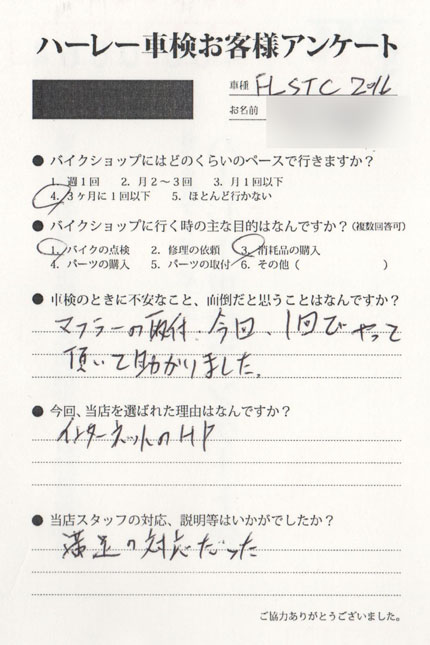 ハーレー車検お客様アンケート
車種 FLSTC 2016
お名前
● バイクショップにはどのくらいのペースで行きますか？
1. 週1回 2. 月2～3回 3. 月1回以下
4. 3ヶ月に1回以下 5. ほとんど行かない
● バイクショップに行く時の主な目的はなんですか？（複数回答可）
1. バイクの点検 2. 修理の依頼 3. 消耗品の購入
4. パーツの購入 5. パーツの取付 6. その他（ ）
● 車検のときに不安なこと、面倒だと思うことはなんですか？
マフラーの取付、今回、1回でやって
頂いて助かりました。
● 今回、当店を選ばれた理由はなんですか？
インターネットのHP
● 当店スタッフの対応、説明等はいかがでしたか？
満足の対応だった
ご協力ありがとうございました。